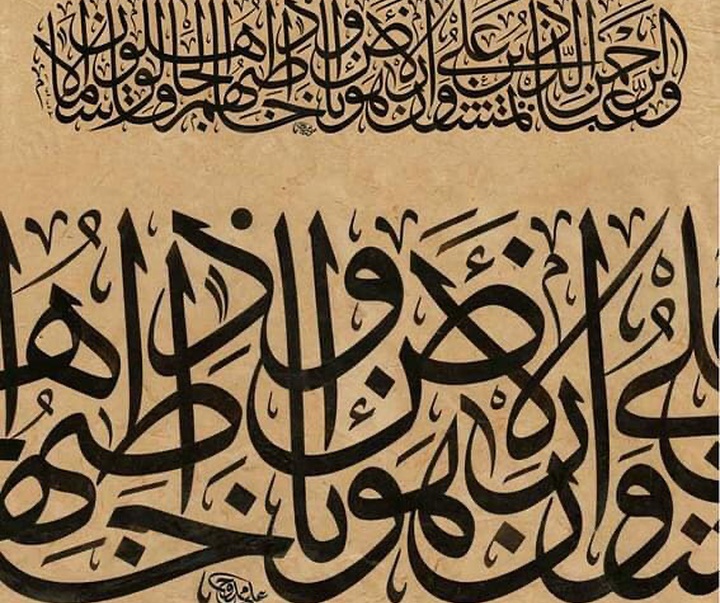 وعباد الرحمن الذين يمشون على الأرض هونا وإذا خاطبهم الجاهلون قالوا سلاما
على الأرض هونا وإذا خاطبهم